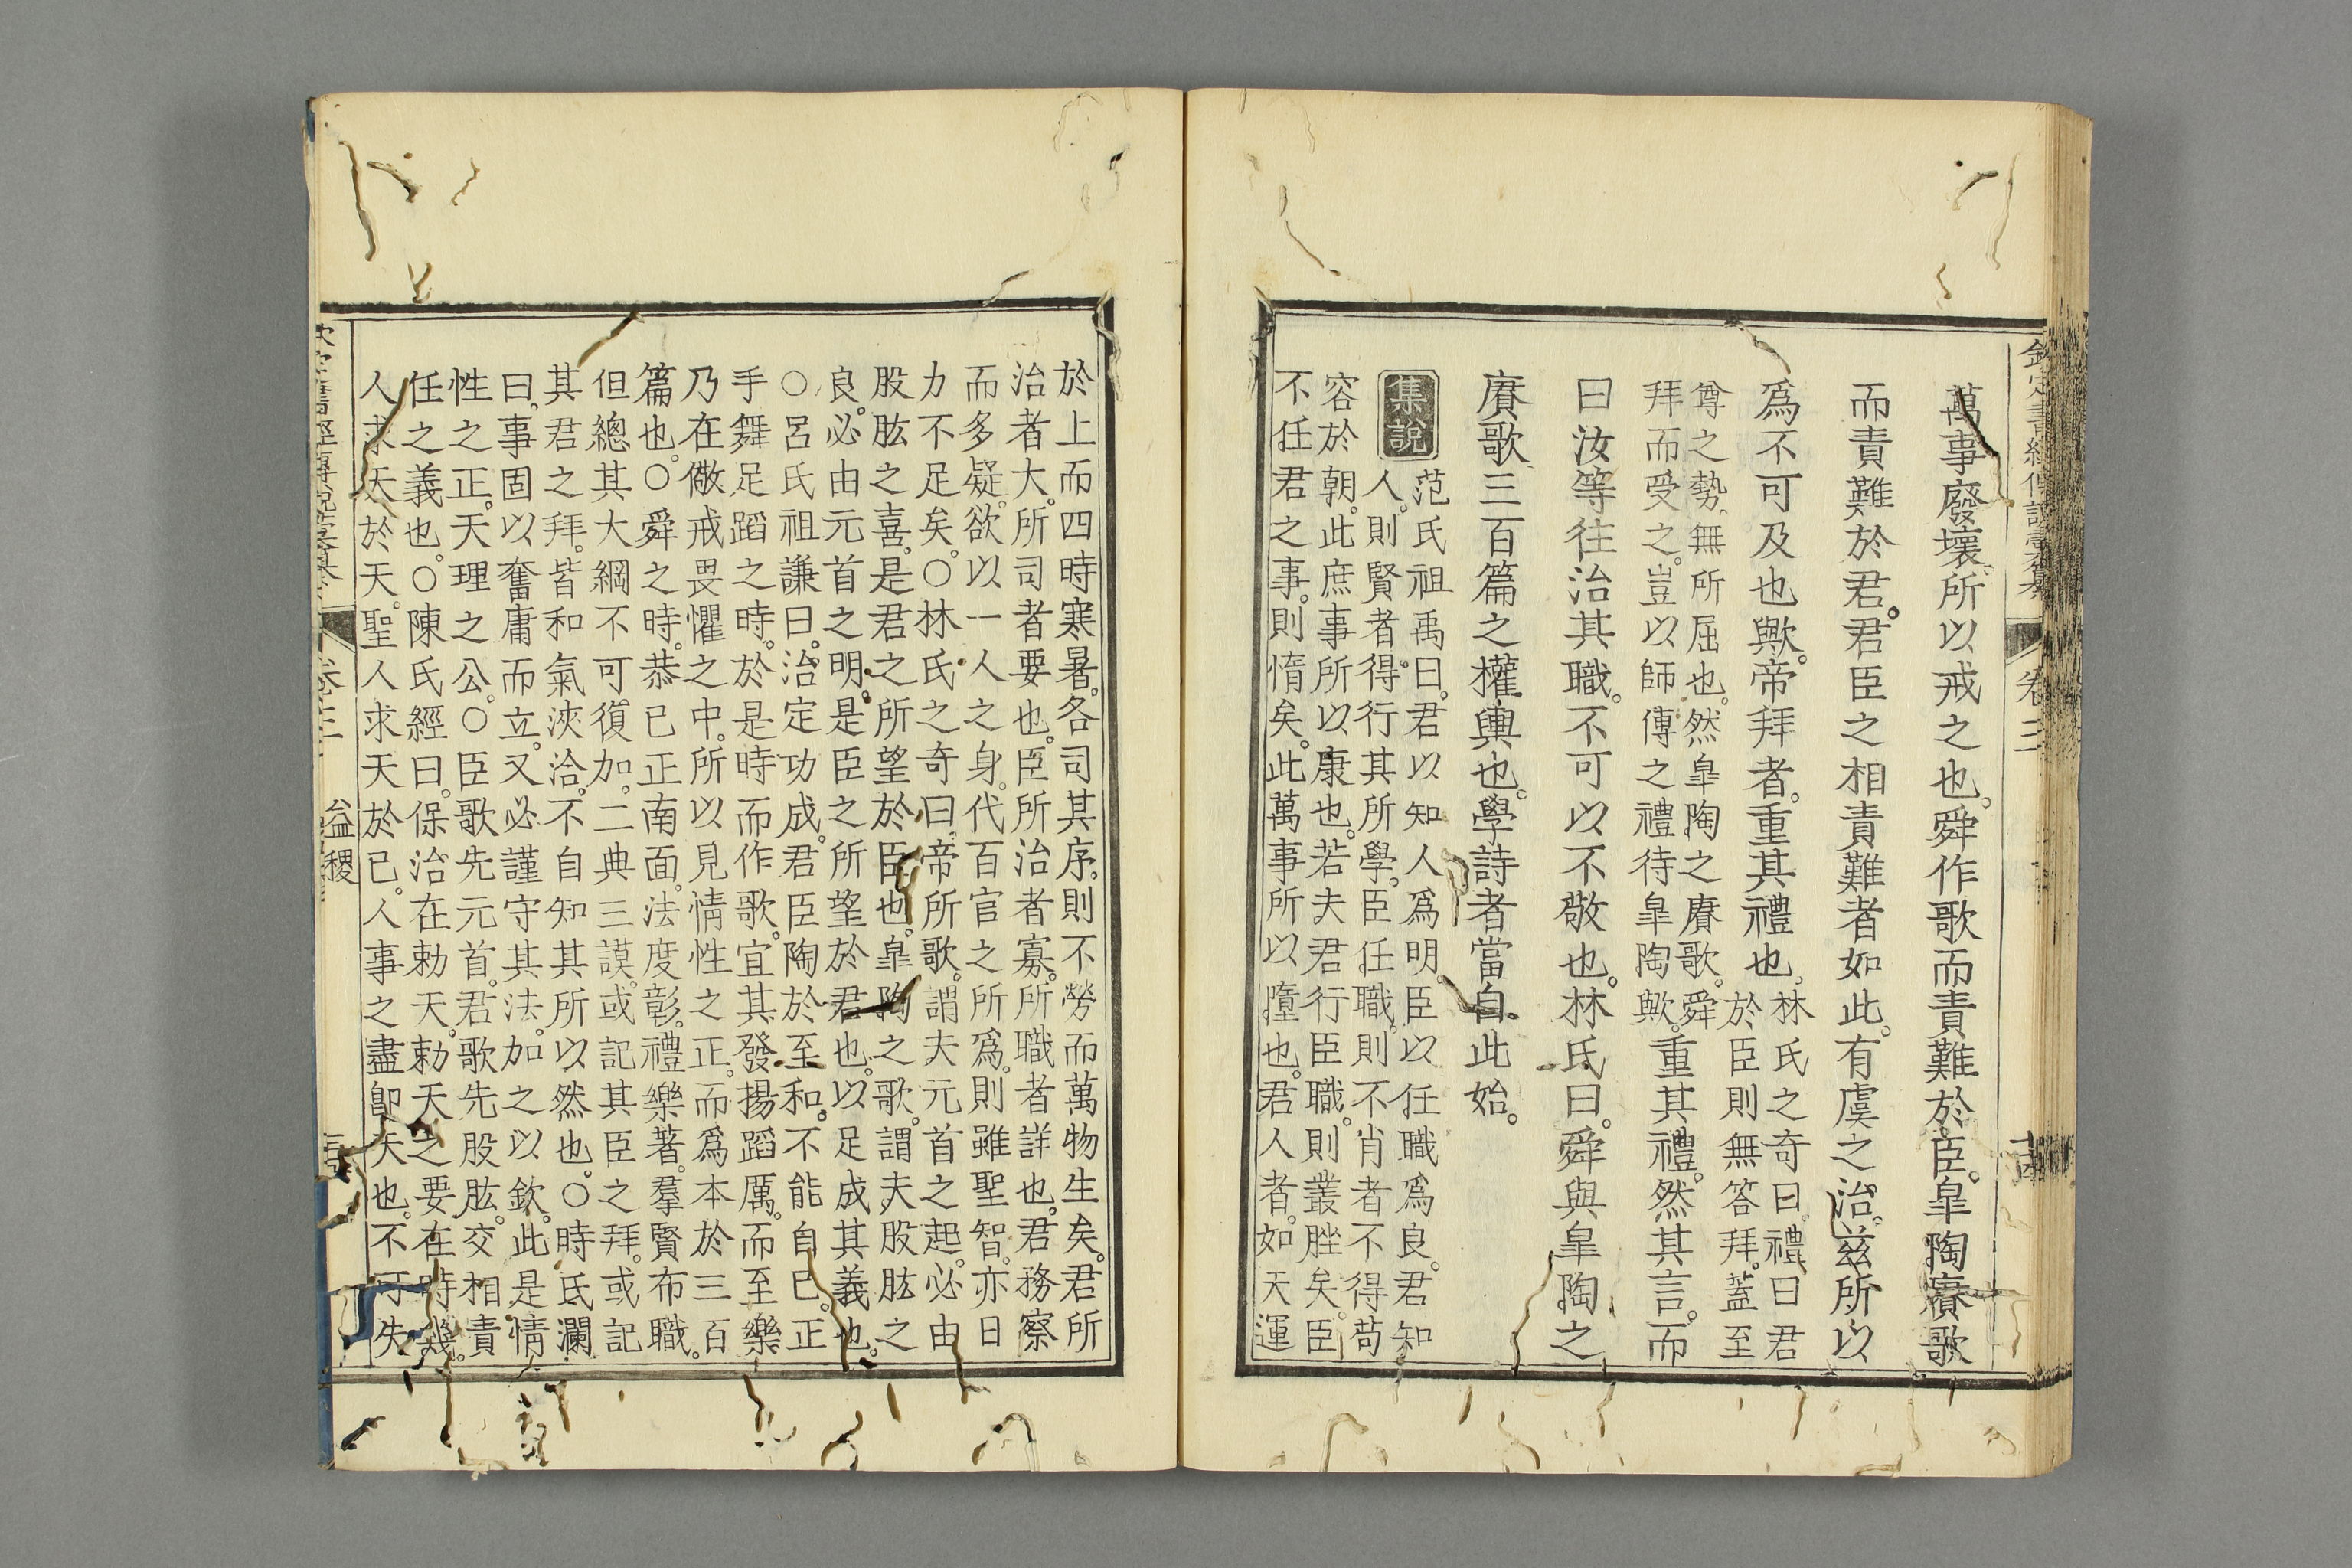 欽定書經傳說彙纂 卷三
萬事廢壞所以戒之也舜作歌而責難於臣臯陶賡歌
而責難於君君臣之相責難者如此有虞之治茲所以
爲不可及也歟帝拜者重其禮也林氏之奇曰禮曰君
於臣則無答拜蓋至
尊之勢無所屈也然臯陶之賡歌舜
拜而受之豈以師傅之禮待臯陶歟重其禮然其言而
曰汝等往治其職不可以不敬也林氏曰舜與臯陶之
賡歌三百篇之權輿也學詩者當自此始
集說
范氏祖禹曰君以知人爲明臣以任職爲良君知
人則賢者得行其所學臣任職則不肖者不得苟
容於朝此庶事所以康也若夫君行臣職則叢脞矣臣
不任君之事則惰矣此萬事所以墮也君人者如天運
於上而四時寒暑各司其序則不勞而萬物生矣君所
治者大所司者要也臣所治者寡所職者詳也君務察
而多疑欲以一人之身代百官之所爲則雖聖智亦日
力不足矣○林氏之奇曰帝所歌謂夫元首之起必由
股肱之喜是君之所望於臣也臯陶之歌謂夫股肱之
良必由元首之明是臣之所望於君也以足成其義也
○呂氏祖謙曰治定功成君臣陶於至和不能自已正
手舞足蹈之時於是時而作歌宜其發揚蹈厲而至樂
乃在儆戒畏懼之中所以見情性之正而爲本於三百
篇也○舜之時恭已正南面法度彰禮樂著羣賢布職
但總其大綱不可復加二典三謨或記其臣之拜或記
其君之拜皆和氣浹洽不自知其所以然也○時氏瀾
曰事固以奮庸而立又必謹守其法加之以欽此是情
性之正天理之公○臣歌先元首君歌先股肱交相責
任之義也○陳氏經曰保治在勅天勅天之要在時幾
人求天於天聖人求天於已人事之盡卽天也不可失
卷三 益稷